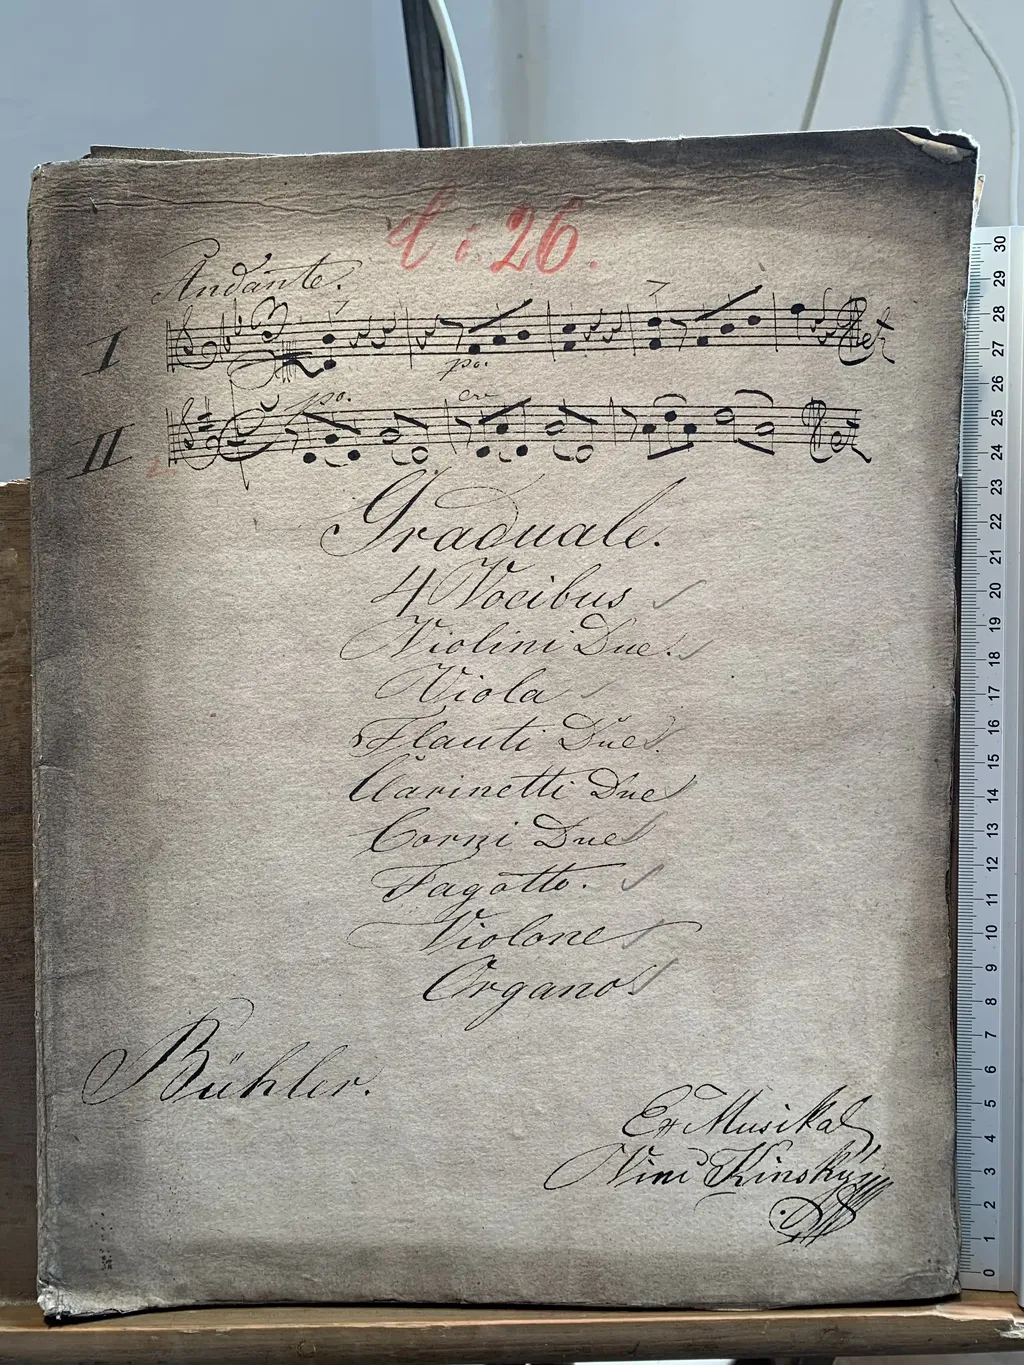 : 26.
Andante.
I
po.
po.
cre
II
Graduale.
4 Vocibus
Violini Due.
Viola
Flauti Due.
Clarinetti Due
Corni Due
Fagotto.
Violone
Organo
Bühler.
Ex Musikal
Kinsky
30
29
28
27
26
25
24
23
22
21
20
19
18
17
16
15
14
13
12
11
10
9
8
7
6
5
4
3
2
1
0